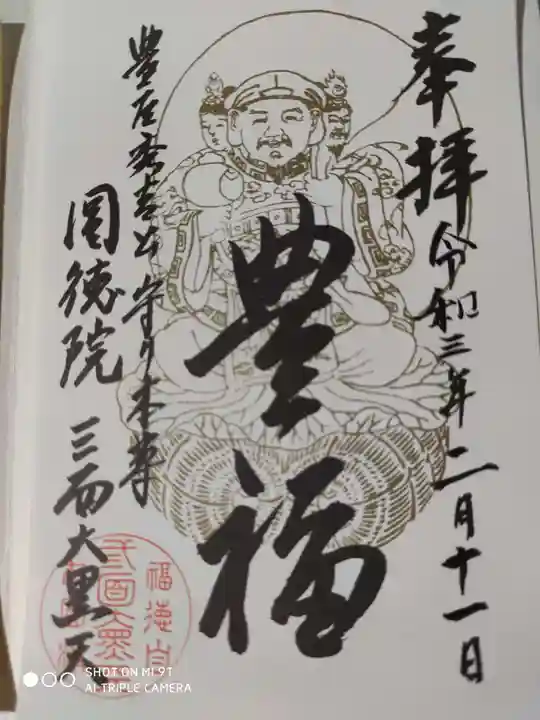 奉拝 令和三年二月十一日
豊福
豊臣秀吉公 守り本尊
圓徳院 三面大黒天
福徳自
SHOT ON MI 9T
AI TRIPLE CAMERA